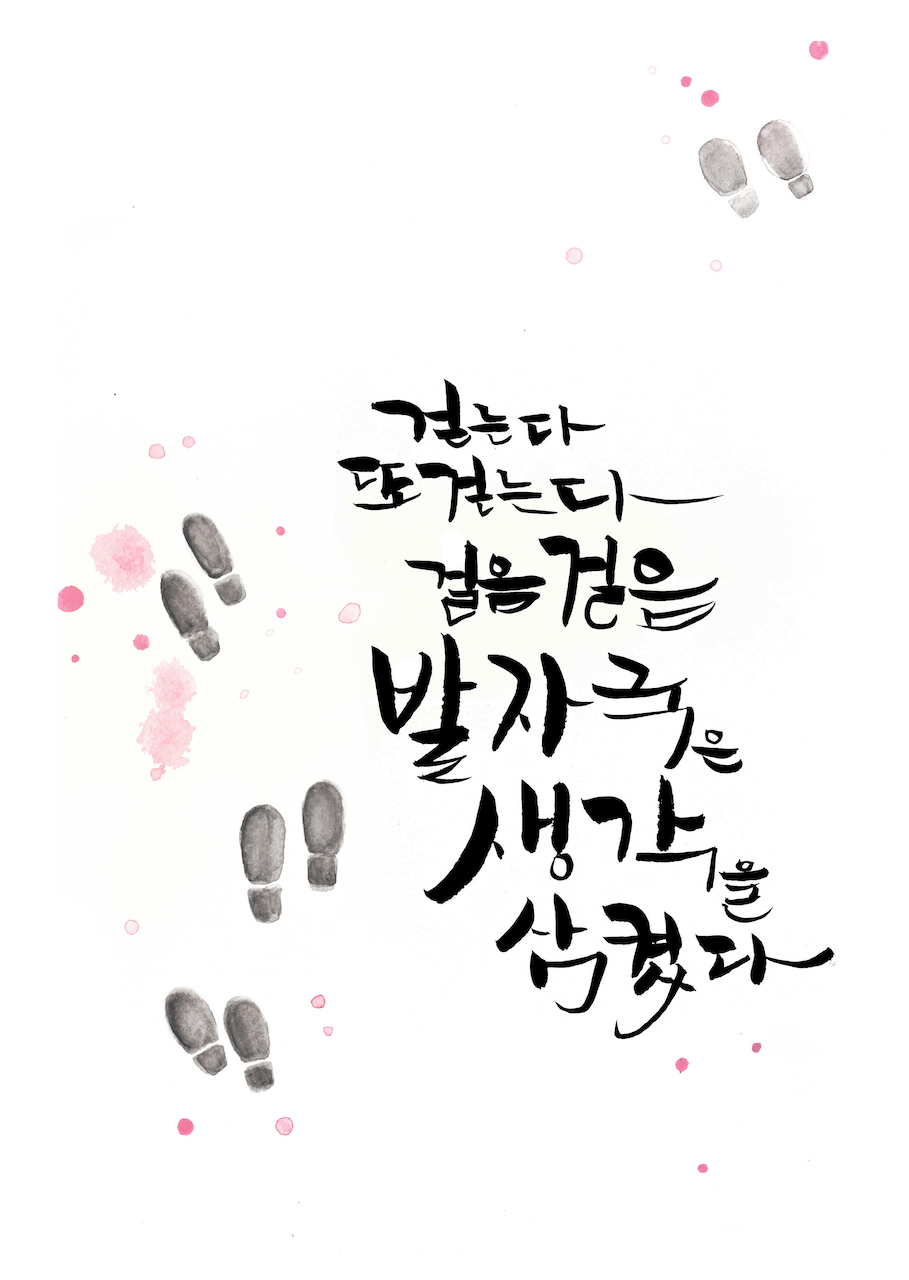 걷는다
또 걷는다
걸음 걸음
발자국은
생각을
삼켰다